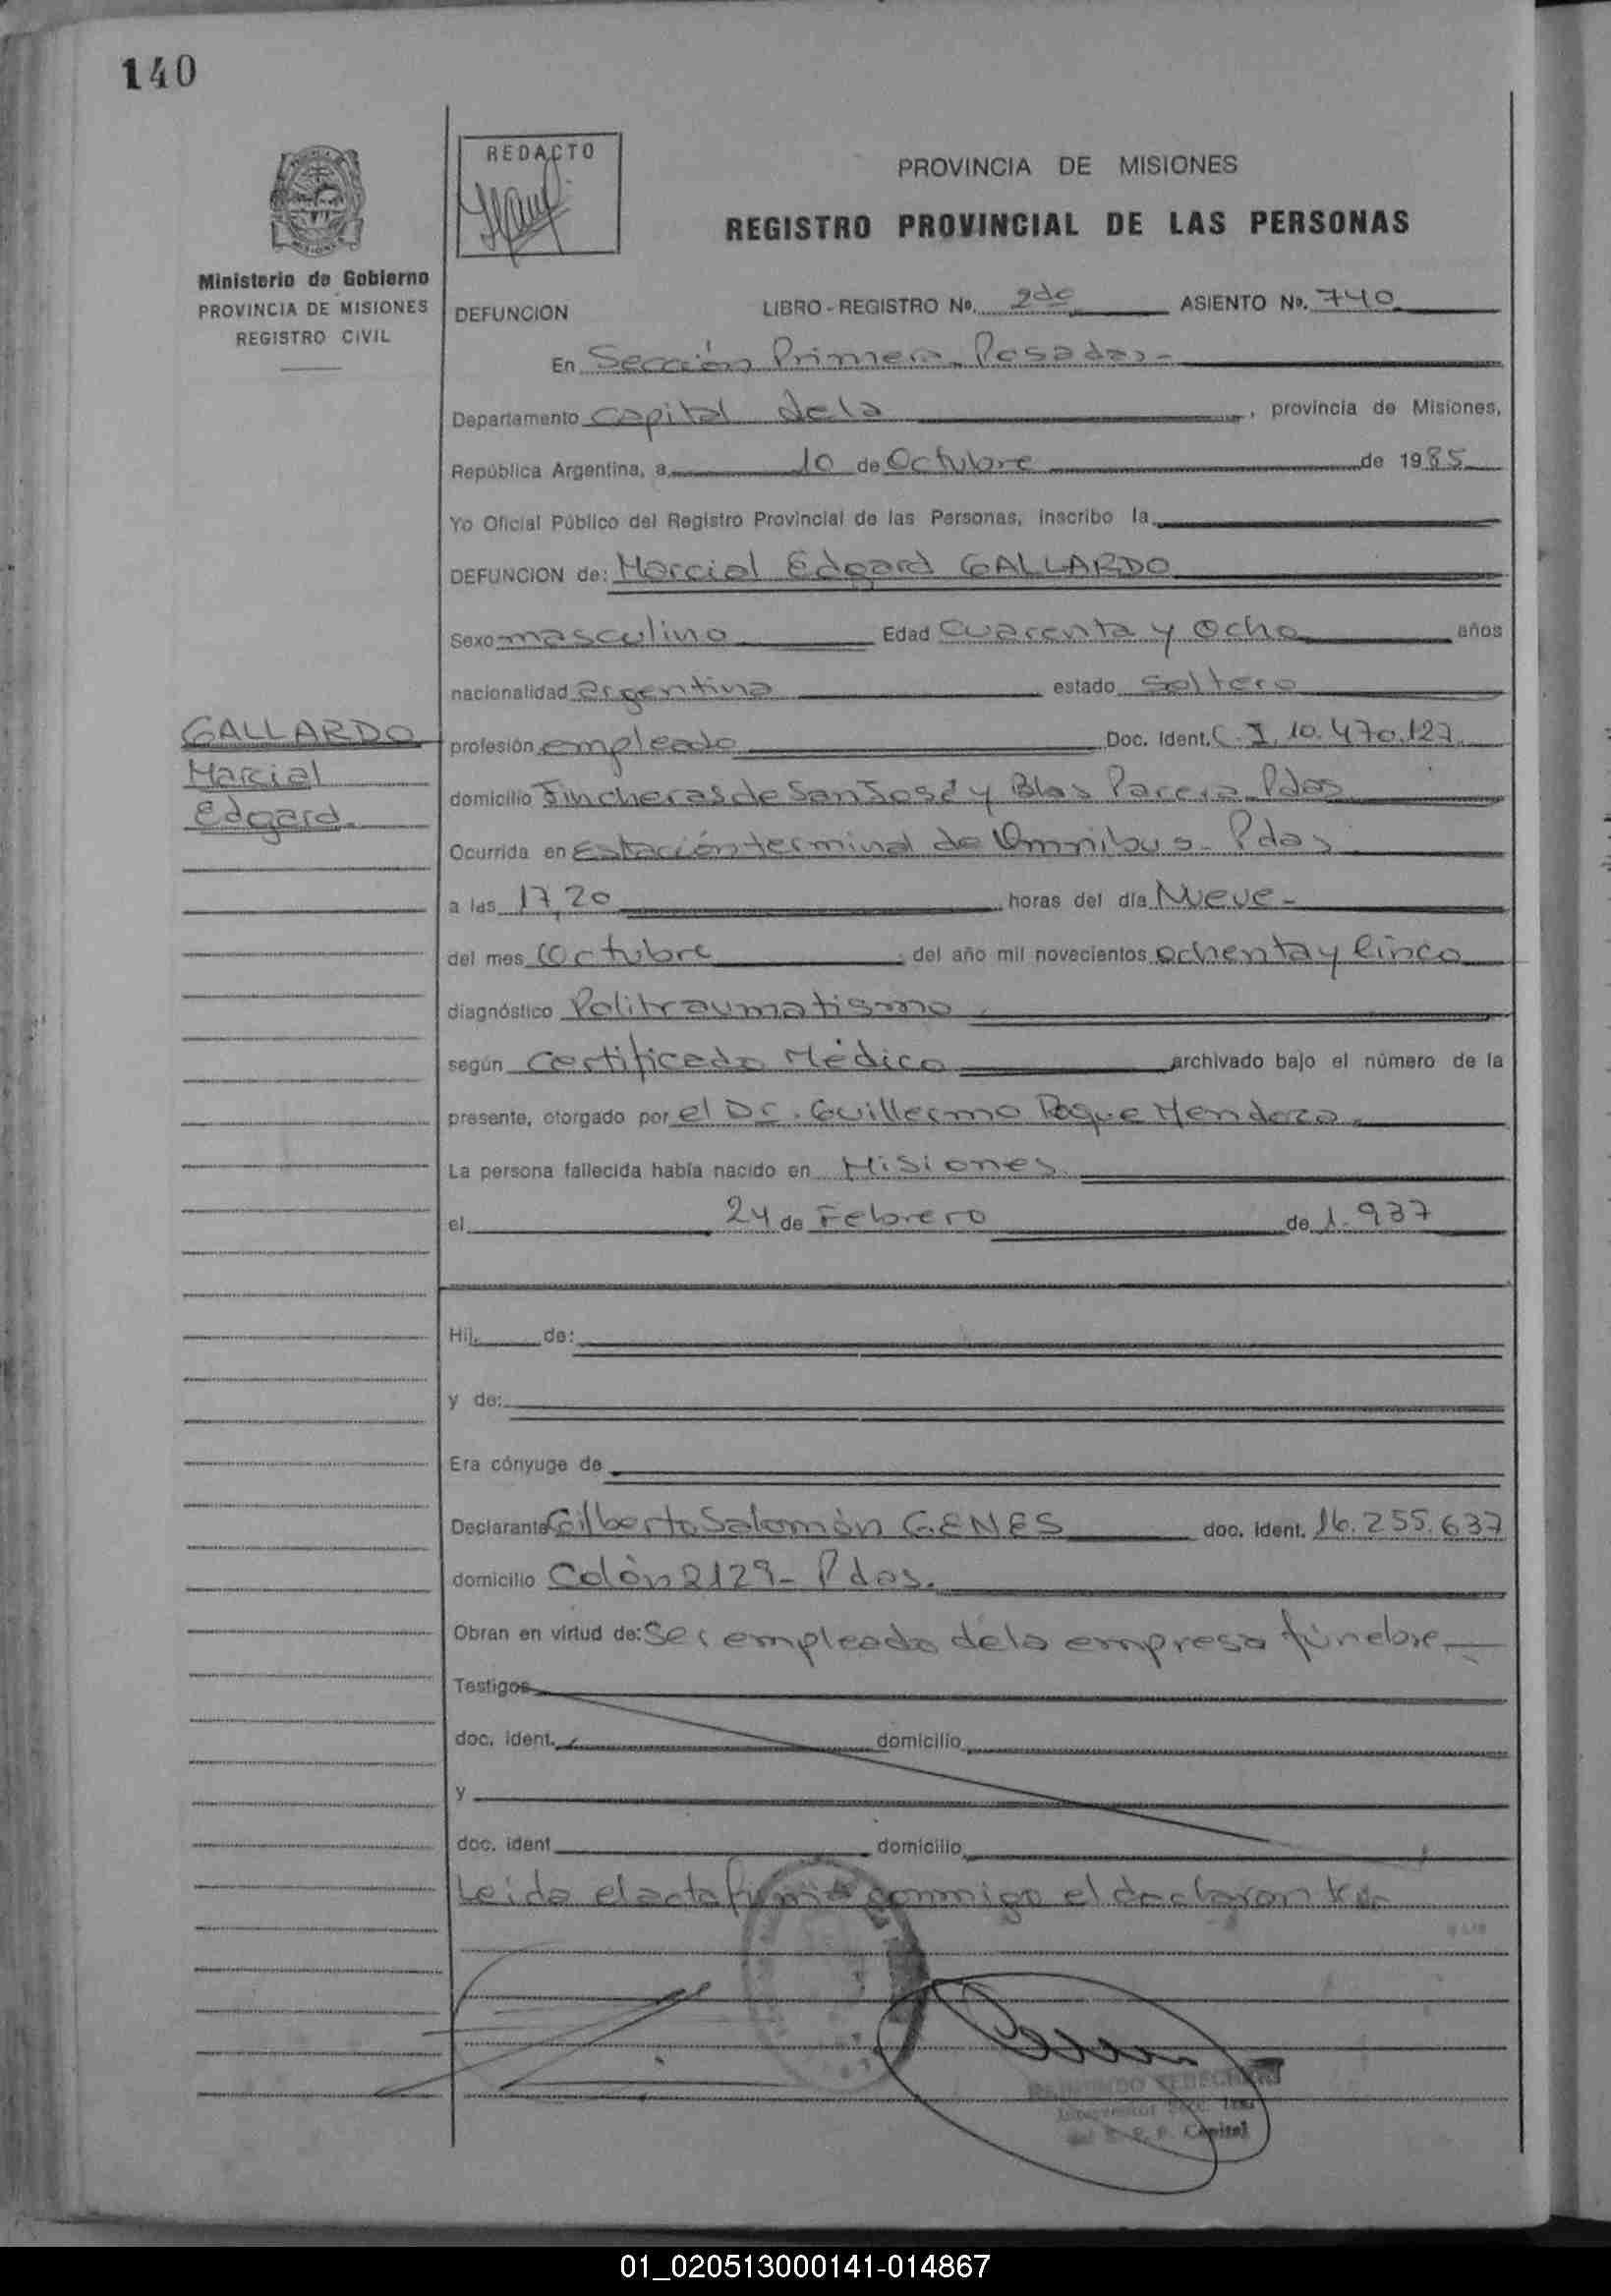 140
REDACTO
PROVINCIA DE MISIONES
REGISTRO PROVINCIAL DE LAS PERSONAS
Ministerio de Gobierno
PROVINCIA DE MISIONES
REGISTRO CIVIL
DEFUNCION LIBRO - REGISTRO Nº. 2do ASIENTO Nº. 740
En Sección Primera Posadas -
Departamento Capital de la , provincia de Misiones,
República Argentina, a 10 de Octubre de 1985
Yo Oficial Público del Registro Provincial de las Personas, inscribo la
DEFUNCION de: Marcial Edgard GALLARDO
Sexo masculino Edad Cuarenta y Ocho años
nacionalidad argentina estado Soltero
GALLARDO
Marcial
Edgard.
profesión empleado Doc. Ident. C.I. 10.470.127.
domicilio Tincheras de San José y Blas Parera Pdas
Ocurrida en Estación terminal de Omnibus - Pdas
a las 17,20 horas del día Nueve -
del mes Octubre del año mil novecientos ochenta y Cinco
diagnóstico Politraumatismo
según Certificado Médico archivado bajo el número de la
presente, otorgado por el Dr. Guillermo Roque Mendoza.
La persona fallecida había nacido en Misiones
el 24 de Febrero de 1.937
Hij de:
y de:
Era cónyuge de
Declarante Gilberto Salomón GENES doc. ident. 16.255.637
domicilio Colón 2129 - Pdas.
Obran en virtud de: Ser empleado de la empresa fúnebre
Testigos
doc. ident. domicilio
y
doc. ident domicilio
Leida el acta firma conmigo el declarante
Capital
01_020513000141-014867